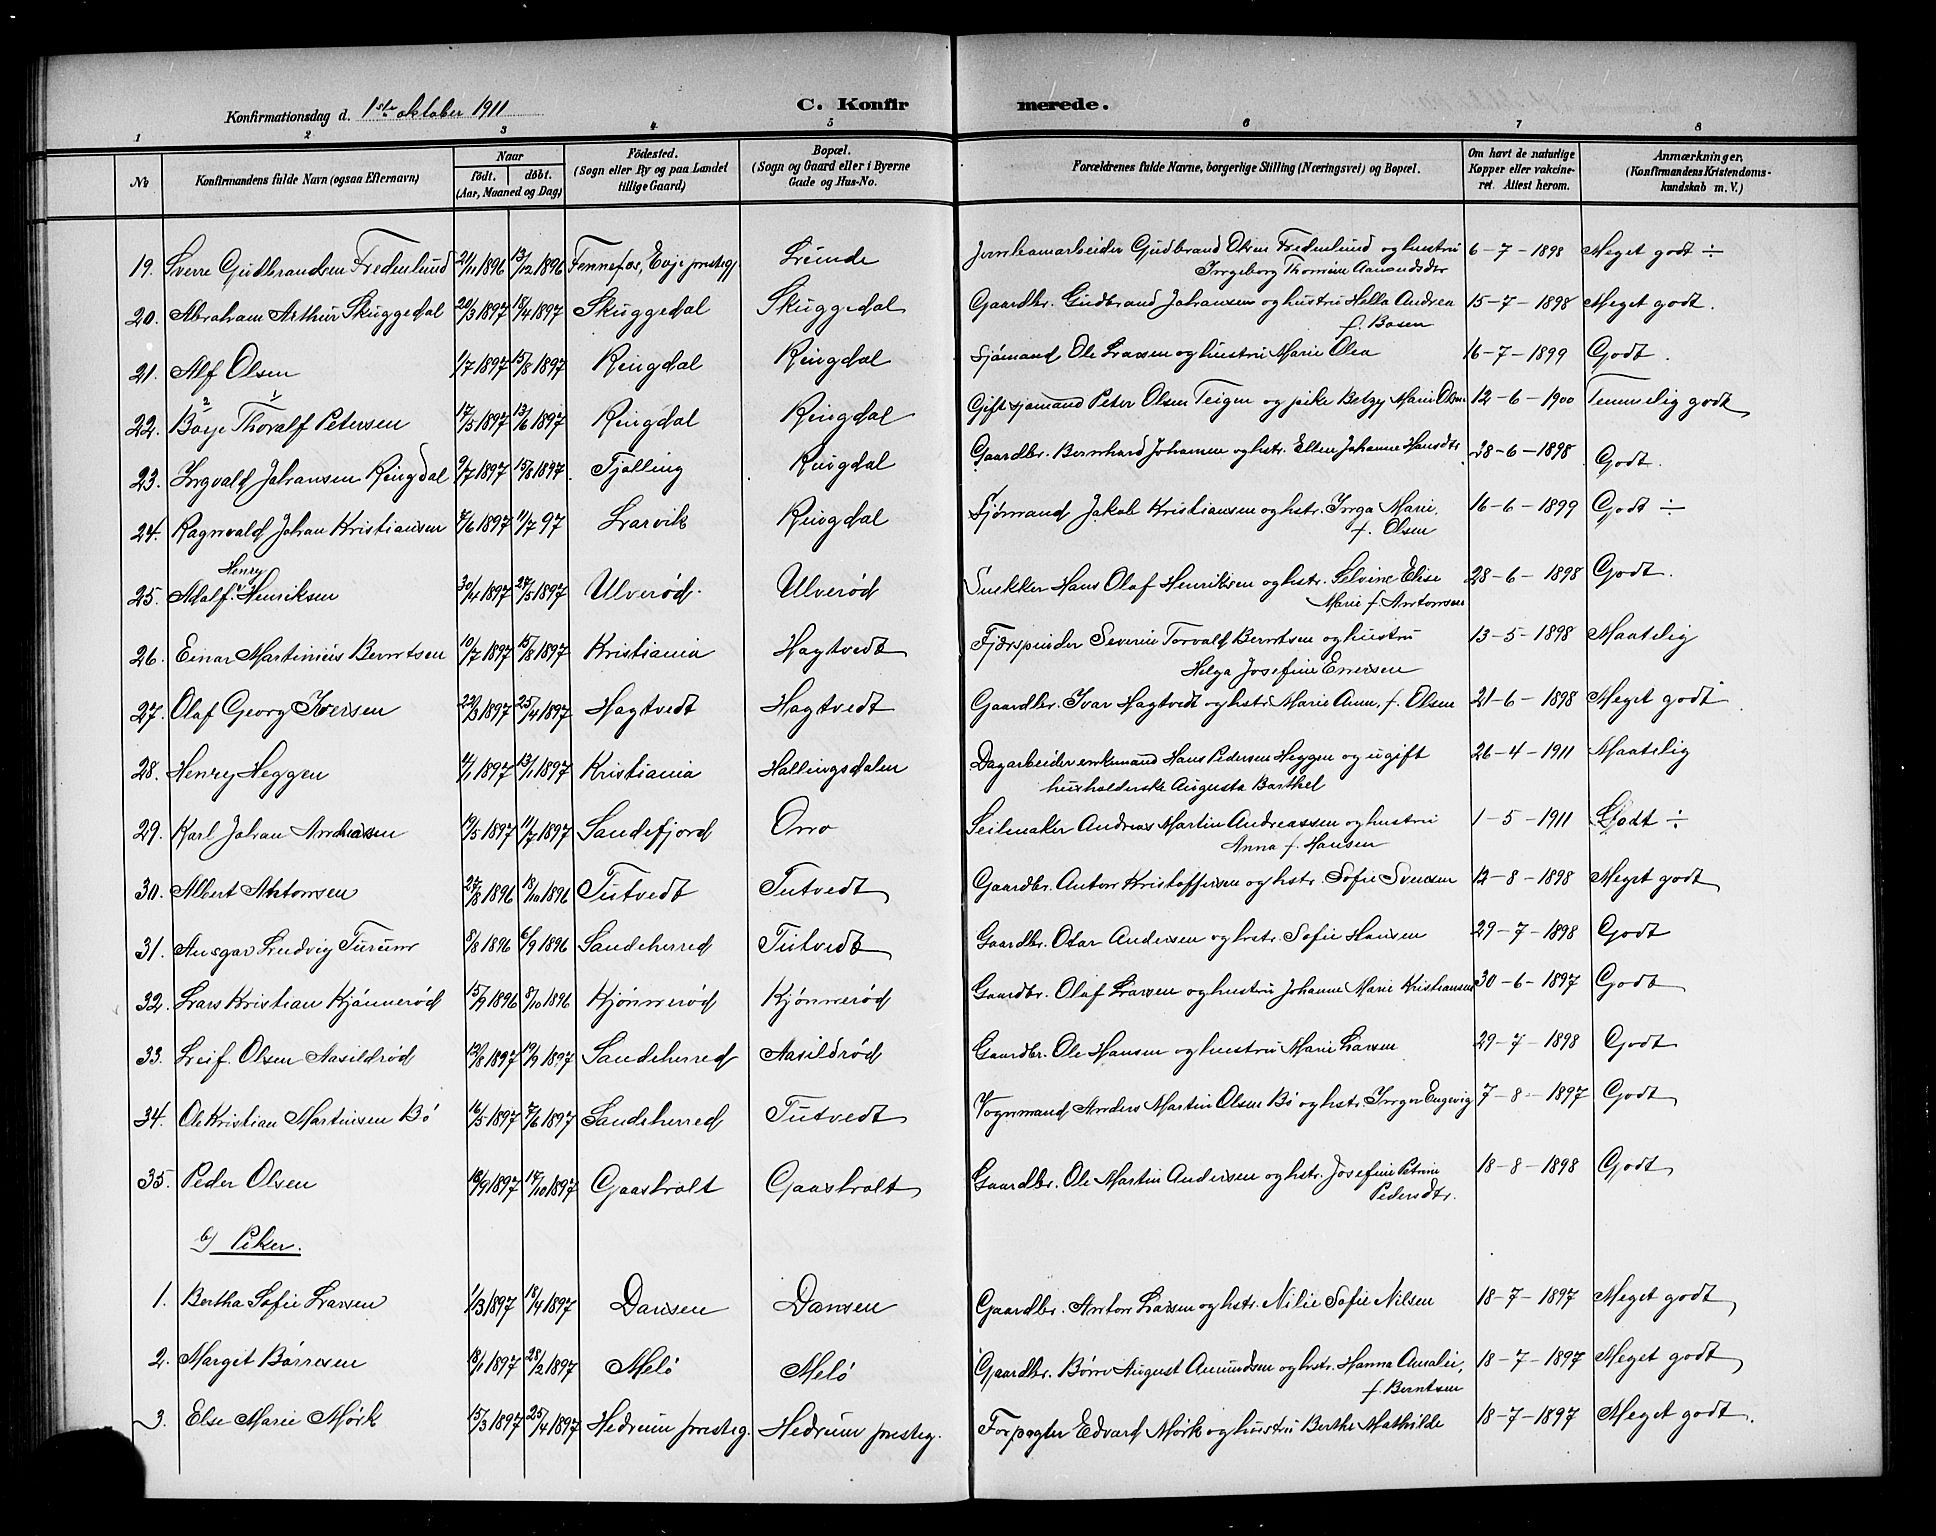 Konfirmationsdag d. 1ste oktober 1911
C. Konfirmerede.
1 2 3 4 5 6 7 8
No
Konfirmandens fulde Navn (ogsaa Efternavn)
Naar
født. døbt.
(Aar, Maaned og Dag)
Fødested.
(Sogn eller By og paa Landet
tillige Gaard)
Bopæl.
(Sogn og Gaard eller i Byerne
Gade og Hus-No.
Forældrenes fulde Navne, borgerlige Stilling (Næringsvei) og Bopæl.
Om havt de naturlige
Kopper eller vakcine-
ret. Attest herom.
Anmærkninger.
(Konfirmandens Kristendoms-
kundskab m. V.)
19. Sverre Gudbrandsen Fredenlund 21/11 1896 13/12 1896 Fennefos, Evje prestegj. Lunde Jernbanarbeider Gudbrand Olsen Fredenlund og hustru 6-7-1898 Meget godt ÷
Ingeborg Thomine Aanundsdtr
20. Abraham Arthur Skuggedal 20/3 1897 18/4 1897 Skuggedal Skuggedal Gaardbr. Gudbrand Johansen og hustru Hella Andrea 15-7-1898 Meget godt.
f. Basen
21. Alf Olsen 1/7 1897 15/8 1897 Ringdal Ringdal Sjømand Ole Larsen og hustru Marie Olea 16-7-1899 Godt.
2 1
22. Børje Thoralf Petersen 17/5 1897 13/6 1897 Ringdal Ringdal Gift sjømand Peter Olsen Teigen og pike Betzy Marie Olsen 12-6-1900 Temmelig godt
23. Ingvald Johansen Ringdal 9/7 1897 15/8 1897 Tjølling Ringdal Gaardbr. Bernhard Johansen og hstr. Ellen Johanne Hansdtr 28-6-1898 Godt.
24. Ragnvald Johan Kristiansen 7/6 1897 11/7 97 Larvik Ringdal Sjømand Jakob Kristiansen og hstr. Inga Marie, 16-6-1899 Godt ÷
f. Olsen
Henry
25. Adolf Henriksen 30/4 1897 27/5 1897 Ulverød Ulverød Snekker Hans Olaf Henriksen og hstr. Selvine Elise 28-6-1898 Godt.
Marie f. Antonsen
26. Einar Martinius Berntsen 10/7 1897 15/8 1897 Kristiania Hagtvedt Fjærspinder Severin Torvald Berntsen og hustru 13-5-1898 Maatelig
Helga Josefine Enersen
27. Olaf Georg Iversen 22/3 1897 25/4 1897 Hagtvedt Hagtvedt Gaardbr. Ivar Hagtvedt og hstr. Marie Ann, f. Olsen 21-6-1898 Meget godt
28. Henry Heggen 4/1 1897 13/1 1897 Kristiania Hallingsdalen Dagarbeider enkemand Hans Pedersen Heggen og ugift 26-4-1911 Maatelig
husholderske Augusta Barthel
29. Karl Johan Andreassen 19/5 1897 11/7 1897 Sandefjord Omo Seilmaker Andreas Martin Andreassen og hustru 1-5-1911 Godt ÷
Anna f. Hansen
30. Albert Antonsen 27/8 1896 18/10 1896 Tutvedt Tutvedt Gaardbr. Anton Kristoffersen og hstr. Sofie Svensen 12-8-1898 Meget godt
31. Ansgar Ludvig Furum 8/8 1896 6/9 1896 Sandeherred Tutvedt Gaardbr. Otar Andersen og hstr. Sofie Hansen 29-7-1898 Godt
32. Lars Kristian Kjønnerød 15/9 1896 8/10 1896 Kjønnerød Kjønnerød Gaardbr. Olaf Larsen og hustru Johanne Marie Kristiansen 30-6-1897 Godt
33. Leif Olsen Aasildrød 13/8 1897 19/9 1897 Sandeherred Aasildrød Gaardbr. Ole Hansen og hustru Marie Larsen 29-7-1898 Godt
34. Ole Kristian Martinsen Bø 16/5 1897 7/6 1897 Sandeherred Tutvedt Vognmand Anders Martin Olsen Bø og hstr. Inger Engevig 7-8-1897 Godt
35. Peder Olsen 18/9 1897 17/10 1897 Gaasholt Gaasholt Gaardbr. Ole Martin Andersen og hstr. Josefine Petrine 18-8-1898 Godt
Pedersdtr.
b) Piker.
1. Bertha Sofie Larsen 1/3 1897 18/4 1897 Dansen Dansen Gaardbr. Anton Larsen og hstr. Nilie Sofie Nilsen 18-7-1897 Meget godt
2. Margit Børresen 18/1 1897 28/2 1897 Melø Melø Gaardbr. Børre August Amundsen og hstr. Hanna Amalie, 18-7-1897 Meget godt
f. Berntsen
3. Else Marie Mørk 15/3 1897 25/4 1897 Hedrum presteg. Hedrum presteg. Forpagter Edvard Mørk og hustru Berthe Mathilde 18-7-1897 Meget godt.